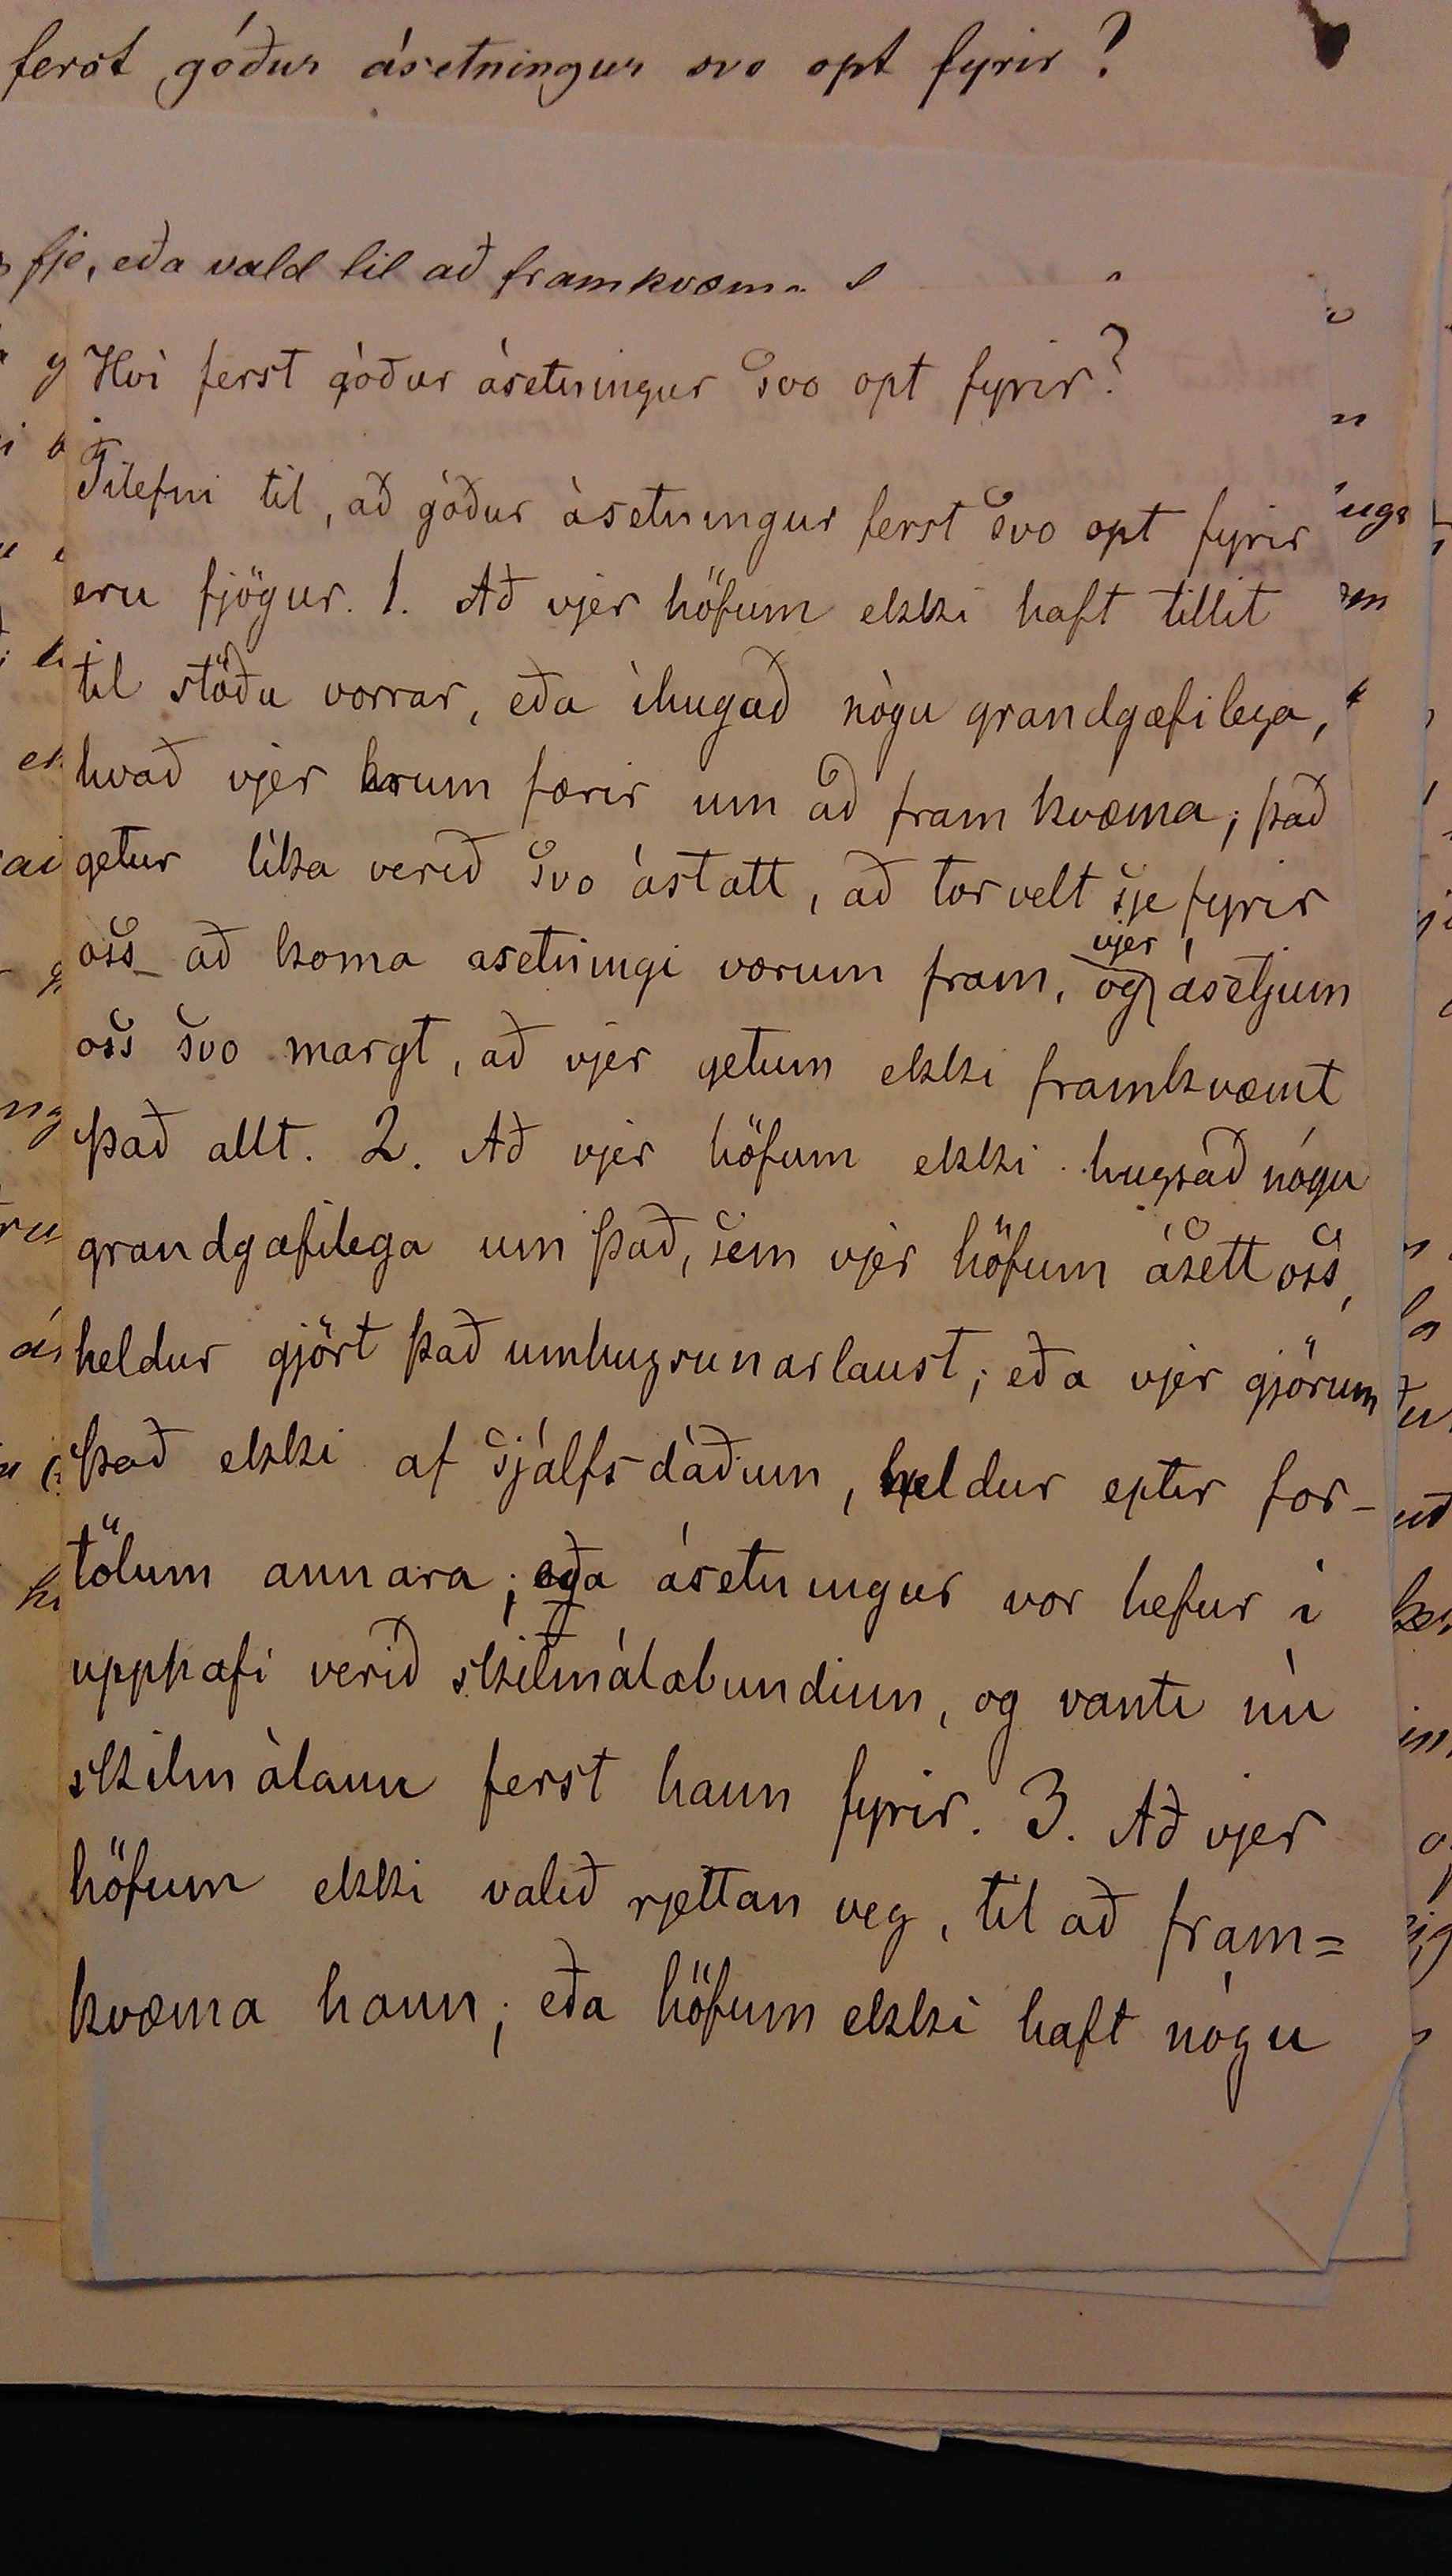 ferst góður ásetningur svo opt fyrir?
fje, eða vald til að framkvæma
Hvi ferst góður ásetningur svo opt fyrir?
Tilefni til, að góður ásetningur ferst svo opt fyrir
eru fjögur. 1. Að vjer höfum ekki haft tillit
til stöðu vorrar, eða íhugað nógu grandgæfilega,
hvað vjer erum færir um að fram kvæma; það
getur líka verið svo ástatt, að torvelt sje fyrir
oss að koma asetningi vorum fram, og vjer ásetjum
oss svo margt, að vjer getum ekki framkvæmt
það allt. 2. Að vjer höfum ekki hugsað nógu
grandgæfilega um það, sem vjer höfum ásett oss,
heldur gjört það umhugsunarlaust; eða vjer gjörum
það ekki af sjálfsdáðum, heldur eptir for-
tölum annara; eða ásetningur vor hefur í
upphafi verið skilmálabundinn, og vanti nú
skilmálann ferst hann fyrir. 3. Að vjer
höfum ekki valið rjettan veg, til að fram=
kvæma hann; eða höfum ekki haft nógu